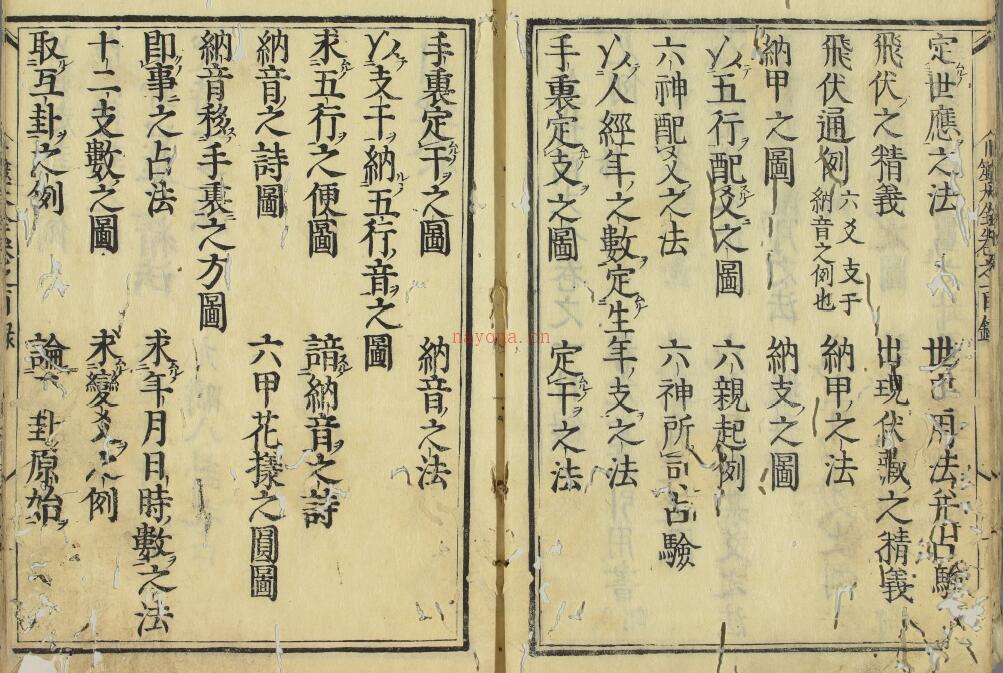 定世應之法　世應用法并占驗
飛伏之精義　出現伏藏之精義
飛伏通例　六爻支干納音之例也　納甲之法
納甲之圖　納支之圖
以五行配爻之圖　六親起例
六神配爻之法　六神所司占驗
以人經年之數定生年支之法
手裏定支之圖　定干之法
手裏定干之圖　納音之法
以支干納五行音之圖
求五行之便圖　諳納音之詩
納音之詩圖　六甲花㨾之圓圖
納音移手裏之方圖
即事之占法　求年月日時數之法
十二支數之圖　求變爻之例
取互卦之例　論卦原始
nayona.cn